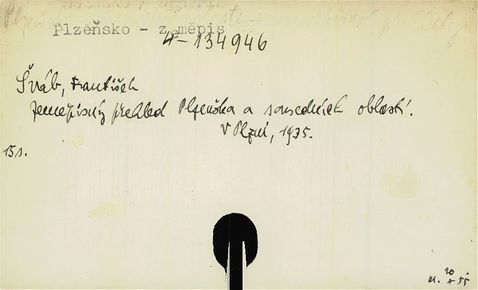 Plzeňsko - zeměpis
4-134946
Šváb, František
Zeměpisný přehled Plzeňska a sousedních oblastí.
V Plzni, 1935.
15 s.